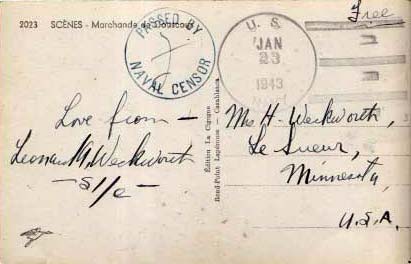 2023 SCÈNES - Marchande de
PASSED BY
NAVAL CENSOR
U. S.
JAN
23
1943
Free
Love from -
Leonard A. Weckworth
- S 1/c -
Édition La Cigogne
Rond-Point Lapérouse - Casablanca
Mrs H. Weckworth,
Le Sueur,
Minnesota,
U.S.A.